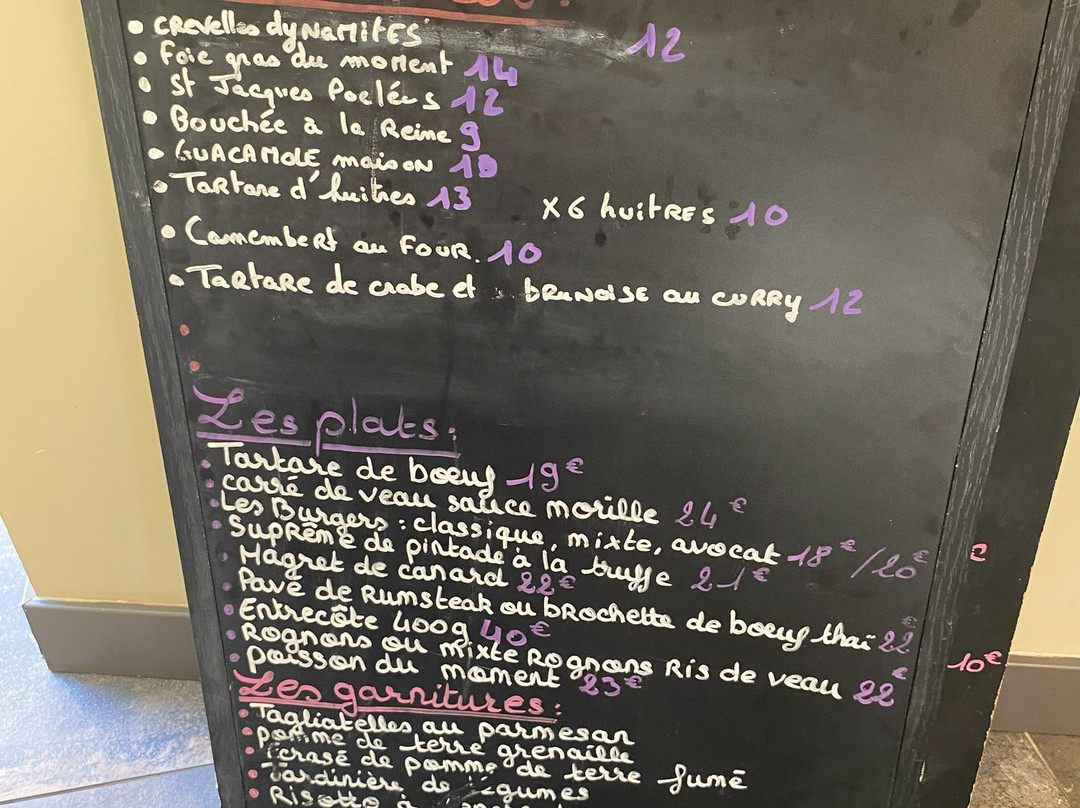 • CREVETTES dyNAMITES 12
• Foie gras du moment 14
• St Jacques Poelées 12
• Bouchée à la Reine 9
• GUACAMOLE maison 10
• Tartare d'huitres 13 X6 huitRES 10
• Camembert au FOUR. 10
• TaRtaRe de crabe et bRUNOISE au CURRy 12
Les plats:
• Tartare de boeuf 19€
• carré de veau sauce morille 24€
• Les Burgers : classique, mixte, avocat 18€/20€ €
• Suprême de pintade à la truffe 21€
• Magret de canard 22€
• Pavé de Rumsteak ou bRochette de boeuf thaï 22€
• Entrecôte 400g 40€
• Rognons ou mixte Rognons Ris de veau 22€ 10€
• poisson du moment 23€
Les garnitures:
• Tagliatelles au parmesan
• pomme de terre grenaille
• écrasé de pomme de terre fumé
• Jardinière de légumes
• Risotto à